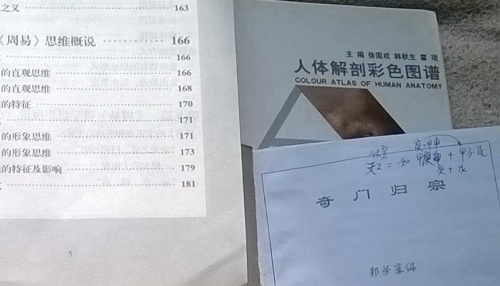 之义 163
《周易》思维概说 166
166
的直观思维 166
的直观思维 168
的特征 170
171
的形象思维 171
的形象思维 173
的特征及影响 179
181
5
主编 徐国成 韩秋生 霍琨
人体解剖彩色图谱
COLOUR ATLAS OF HUMAN ANATOMY
奇门归宗